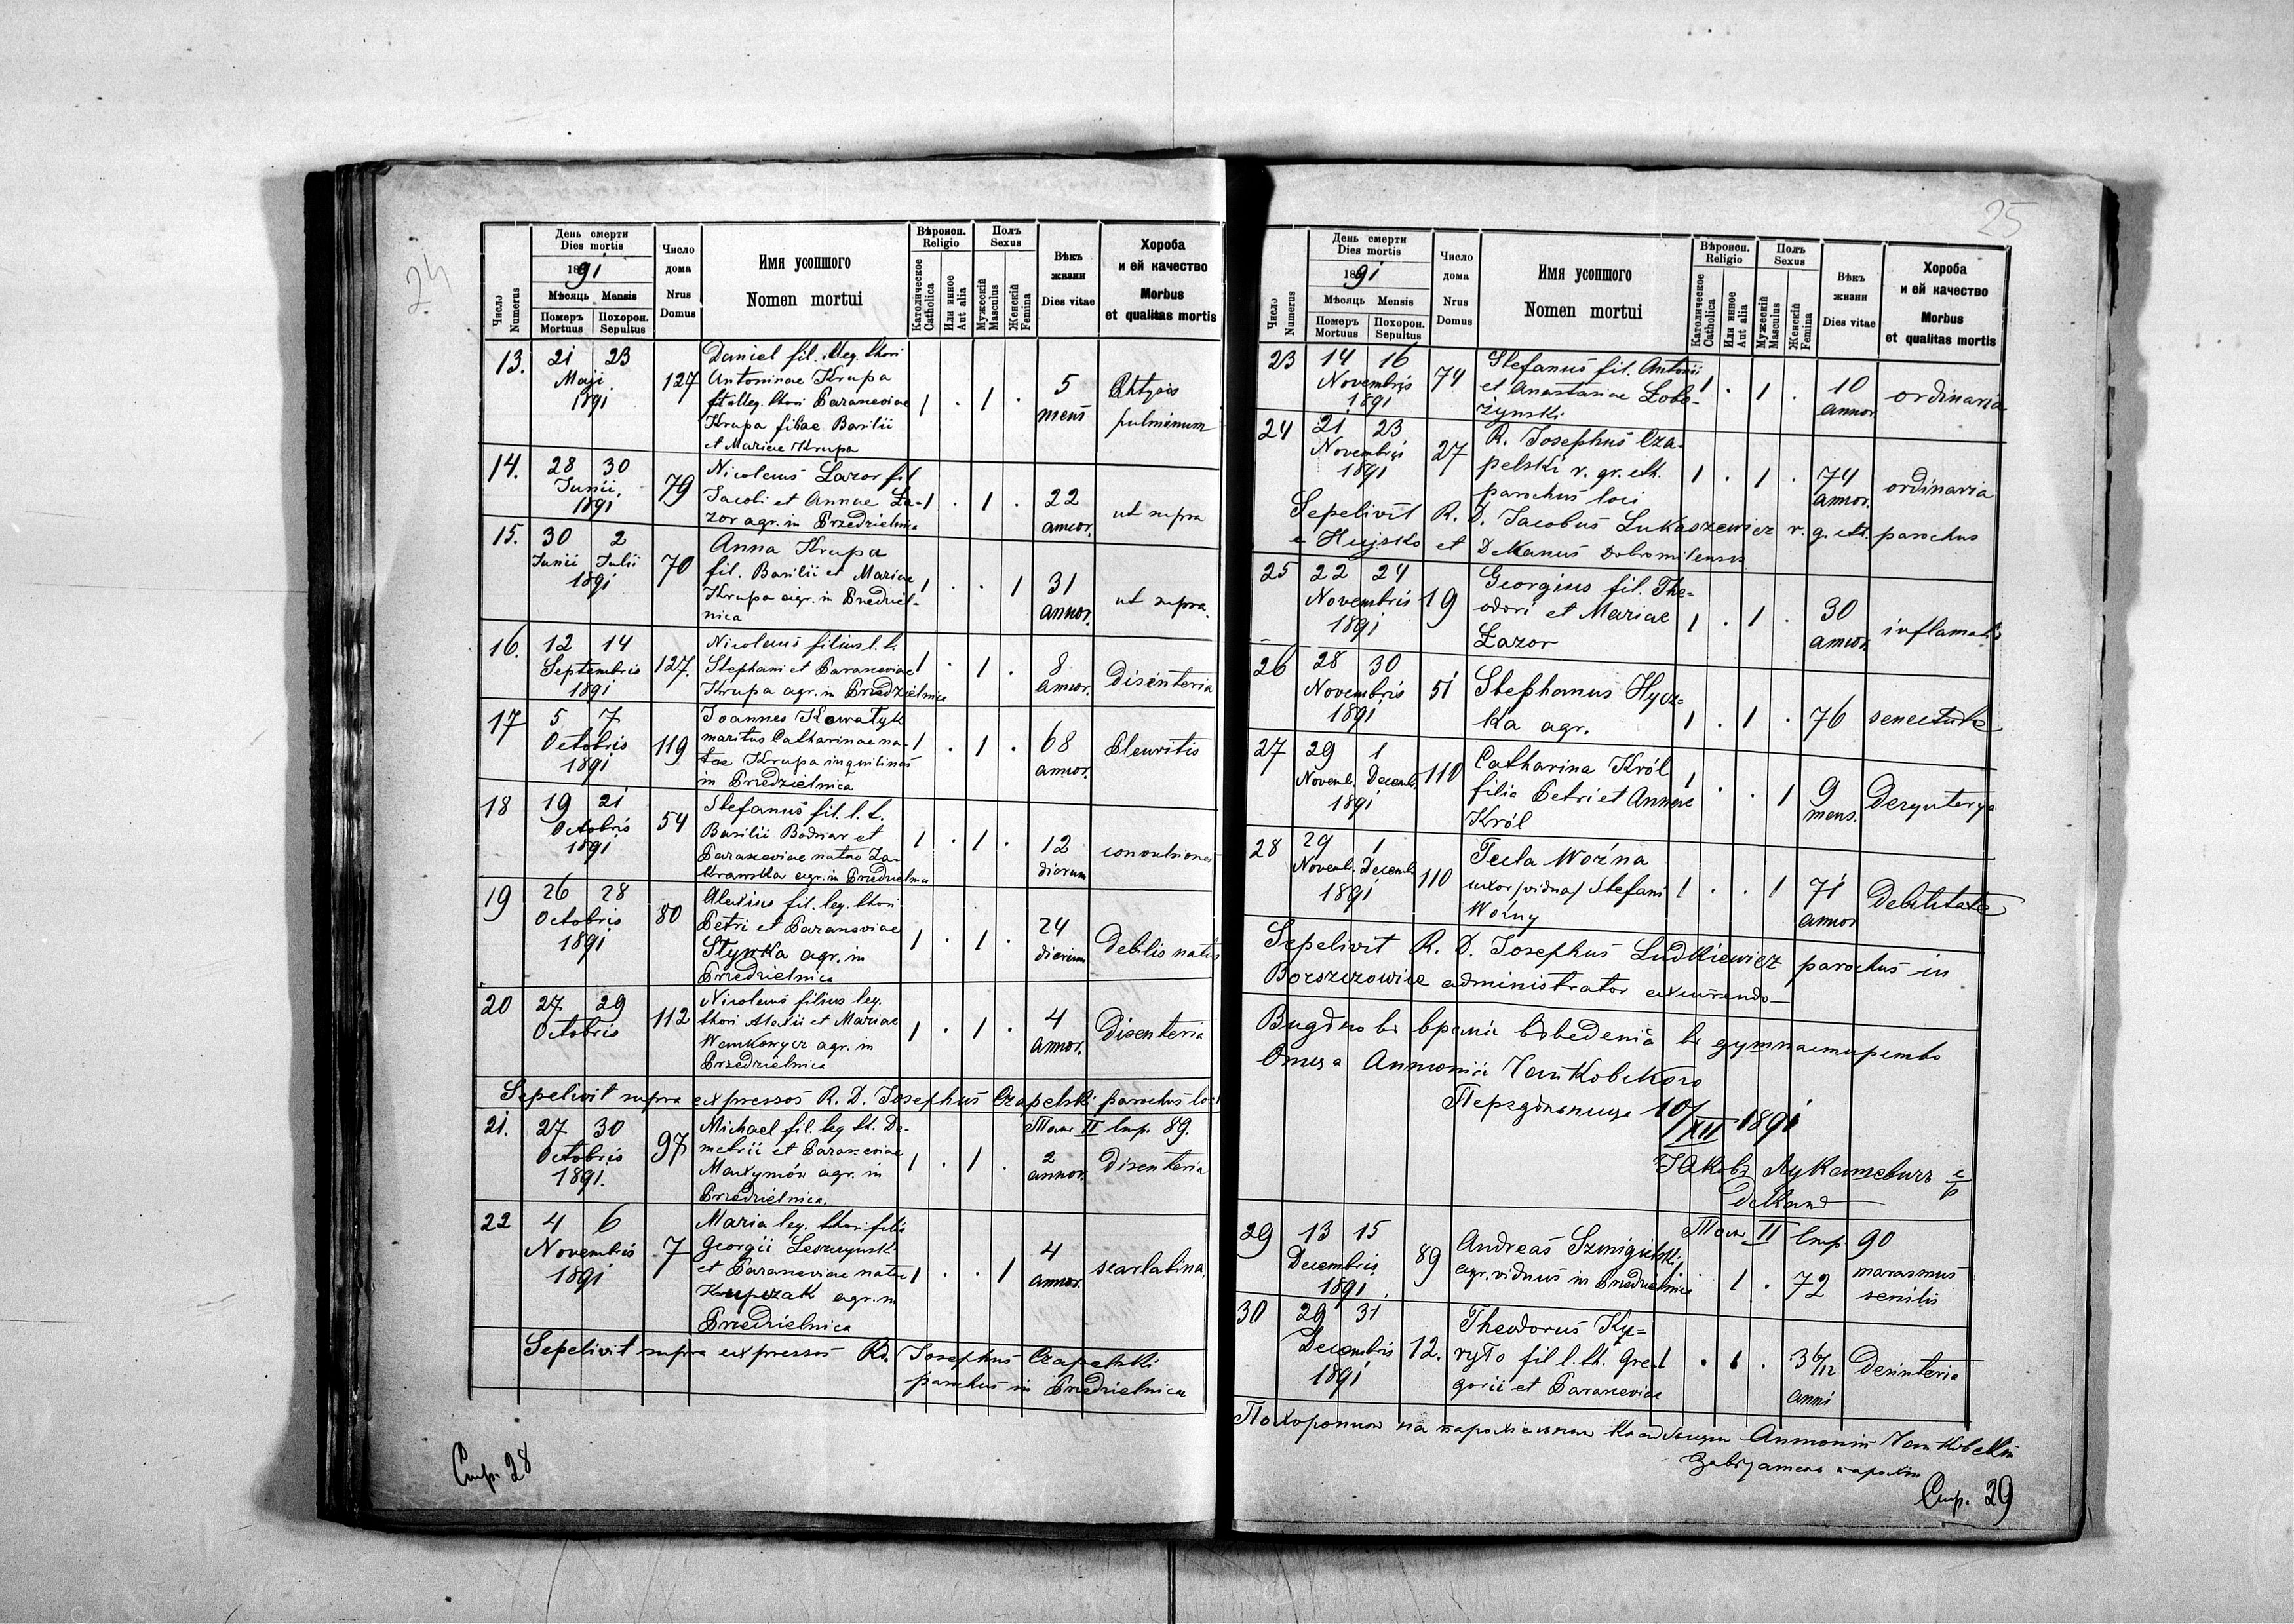 24
День смерти
Dies mortis
1891
Мѣсяць Mensis
Померъ Похорон.
Mortuus Sepultus
Число
Numerus
Число
дома
Nrus
Domus
Имя усопшого
Nomen mortui
Вѣроисп.
Religio
Католическое
Catholica
Или инное
Aut alia
Полъ
Sexus
Мужескій
Masculus
Женскій
Femina
Вѣкъ
жизни
Dies vitae
Хороба
и ей качество
Morbus
et qualitas mortis
13. 21 23
Maji
1891
127
Daniel fil. illeg. thori
Antoninae Krupa
fil. illeg. thori Parasceviae
Krupa filiae Basilii
et Mariae Krupa
1 . 1 .
5
mens
Phtysis
pulminum
14. 28 30
Junii
1891
79
Nicolaus Lazor fil
Jacobi et Annae La-
zor agr. in Przedzielnica
1 . 1 .
22
annor.
ut supra
15. 30 2
Junii Julii
1891
70
Anna Krupa
fil. Basilii et Mariae
Krupa agr. in Przedziel-
nica
1 . . 1
31
annor.
ut supra.
16. 12 14
Septembris
1891
127.
Nicolaus filius l. t.
Stephani et Parasceviae
Krupa agr. in Przedzielnica
1 . 1 .
8
annor.
Disenteria
17 5 7
Octobris
1891
119
Joannes Kowałyk
maritus Catharinae na-
tae Krupa inquilinus
in Przedzielnica
1 . 1 .
68
annor.
Pleuritis
18 19 21
Octobris
1891
54
Stefanus fil. l. t.
Basilii Bodnar et
Parasceviae natae Za-
krawska agr. in Przedzielnica
1 . 1 .
12
dierum
convulsiones
19 26 28
Octobris
1891
80
Alexius fil. leg. thori
Petri et Parasceviae
agr. in
Przedzielnica
1 . 1 .
24
dierum
Debilis natus
20 27 29
Octobris
112
Nicolaus filius leg.
thori Alexii et Mariae
Wankowycz agr. in
Przedzielnica
1 . 1 .
4
annor.
Disenteria
Sepelivit supra expressos R. D. Josephus Czapelski parochus loci
Томъ II стр. 89.
21. 27 30
Octobris
1891.
97
Michael fil. leg th. De-
metrii et Parasceviae
Maxymów agr. in
Przedzielnica.
1 . 1 .
2
annor.
Disenteria
22 4 6
Novembris
1891
7
Maria leg. thori filia
Georgii Leszczynski
et Parasceviae natae
agr. in
Przedzielnica
1 . . 1
4
annor.
scarlatina
Sepelivit supra expressos Rd. Josephus Czapelski
parochus in Przedzielnica
Стр. 28
25
День смерти
Dies mortis
1891
Мѣсяць Mensis
Померъ Похорон.
Mortuus Sepultus
Число
Numerus
Число
дома
Nrus
Domus
Имя усопшого
Nomen mortui
Вѣроисп.
Religio
Католическое
Catholica
Или инное
Aut alia
Полъ
Sexus
Мужескій
Masculus
Женскій
Femina
Вѣкъ
жизни
Dies vitae
Хороба
и ей качество
Morbus
et qualitas mortis
23 14 16
Novembris
1891
74
Stefanus fil. Antonii
et Anastasiae Łobo-
żynski
1 . 1 .
10
annor
ordinaria
24 21 23
Novembris
1891
27
R. Josephus Cza-
pelski r. gr. cth.
parochus loci
1 . 1 .
74
annor.
ordinaria
Sepelivit R. D. Jacobus Łukaszewicz r. g. cth. parochus
e Hujsko et Dekanus Dobromilensis
25 22 24
Novembris
1891
19
Georgius fil. The-
odori et Mariae
Łazor
1 . 1 .
30
annor.
26 28 30
Novembris
1891
51
Stephanus Hycz-
ka agr.
1 . 1 .
76
senectute
27 29 1
Novemb. Decemb.
1891
110
Catharina Król
filia Petri et Annae
Król
1 . . 1
9
mens.
Dezynterya
28 29 1
Novemb. Decemb.
1891
110
Tecla Woźna
uxor /vidua/ Stefani
Woźny
1 . . 1
71
annor
Debilitate
Sepelivit R. D. Josephus Ludkiewicz parochus in
Borszczowice administrator excurrendo
Видѣно въ время въведенія въ
Отца Антонія Чапковского
Передѣльница 10/XII 1891
Яковъ Лукашевичъ
деканъ
Томъ II стр. 90
29 13 15
Decembris
1891
89
Andreas Szmigielski
agr. viduus in Przedzielnica
1 .
72
marasmus
senilis
30 29 31
Decembris
1891
12.
Theodorus Ky-
ryło fil l. th. Gre-
gorii et Parasceviae
1 . 1 .
3 6/12
anni
Desinteria
Похоронилъ на парохіальномъ кладбищи Антоній Чапковскій
Завѣдатель парохіи
Стр. 29